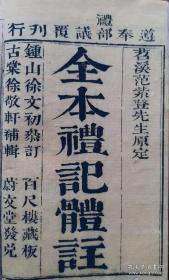 遵奉禮部議覆刊行
苕溪范紫登先生原定
全本禮記體註
鍾山徐文初叅訂
古棠徐敬軒補輯
百尺樓藏板
蔚文堂發兌